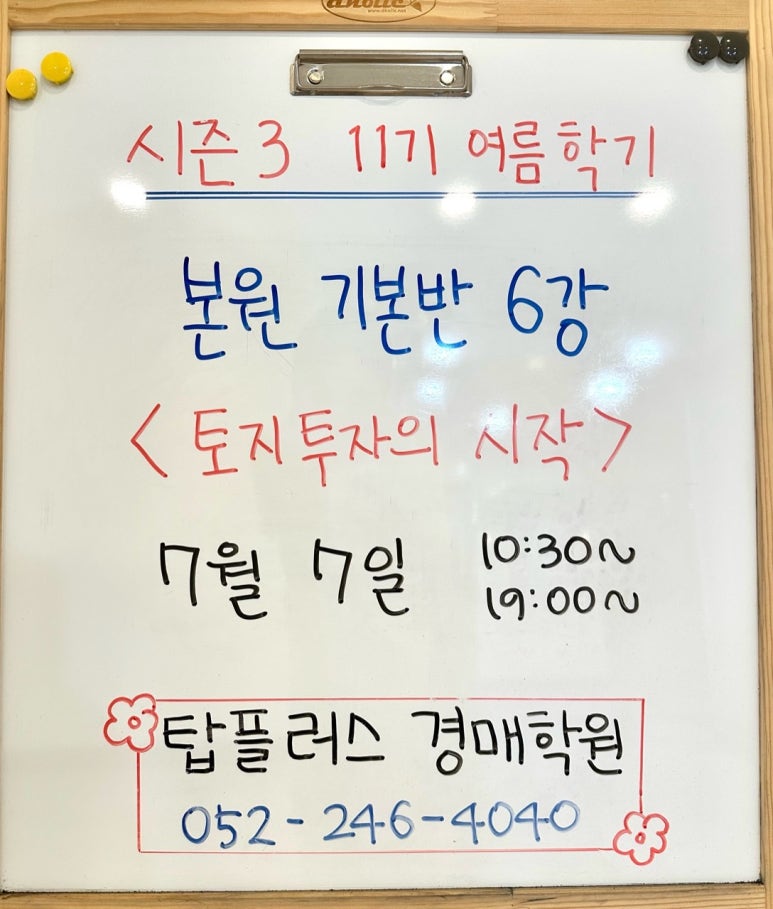 시즌3 11기 여름학기
본원 기본반 6강
<토지투자의 시작>
7월 7일 10:30~
19:00~
탑플러스 경매학원
052-246-4040